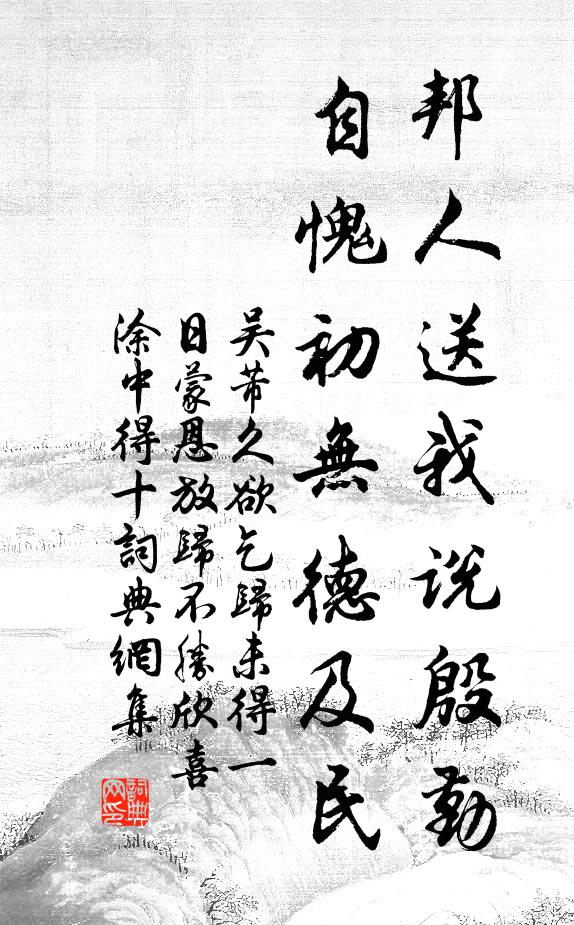 邦人送我说殷勤
自愧初無德及民
吴芾久欲乞歸未得一
日蒙恩放歸不勝欣喜
涂中得十詞典網集
詞典
网印